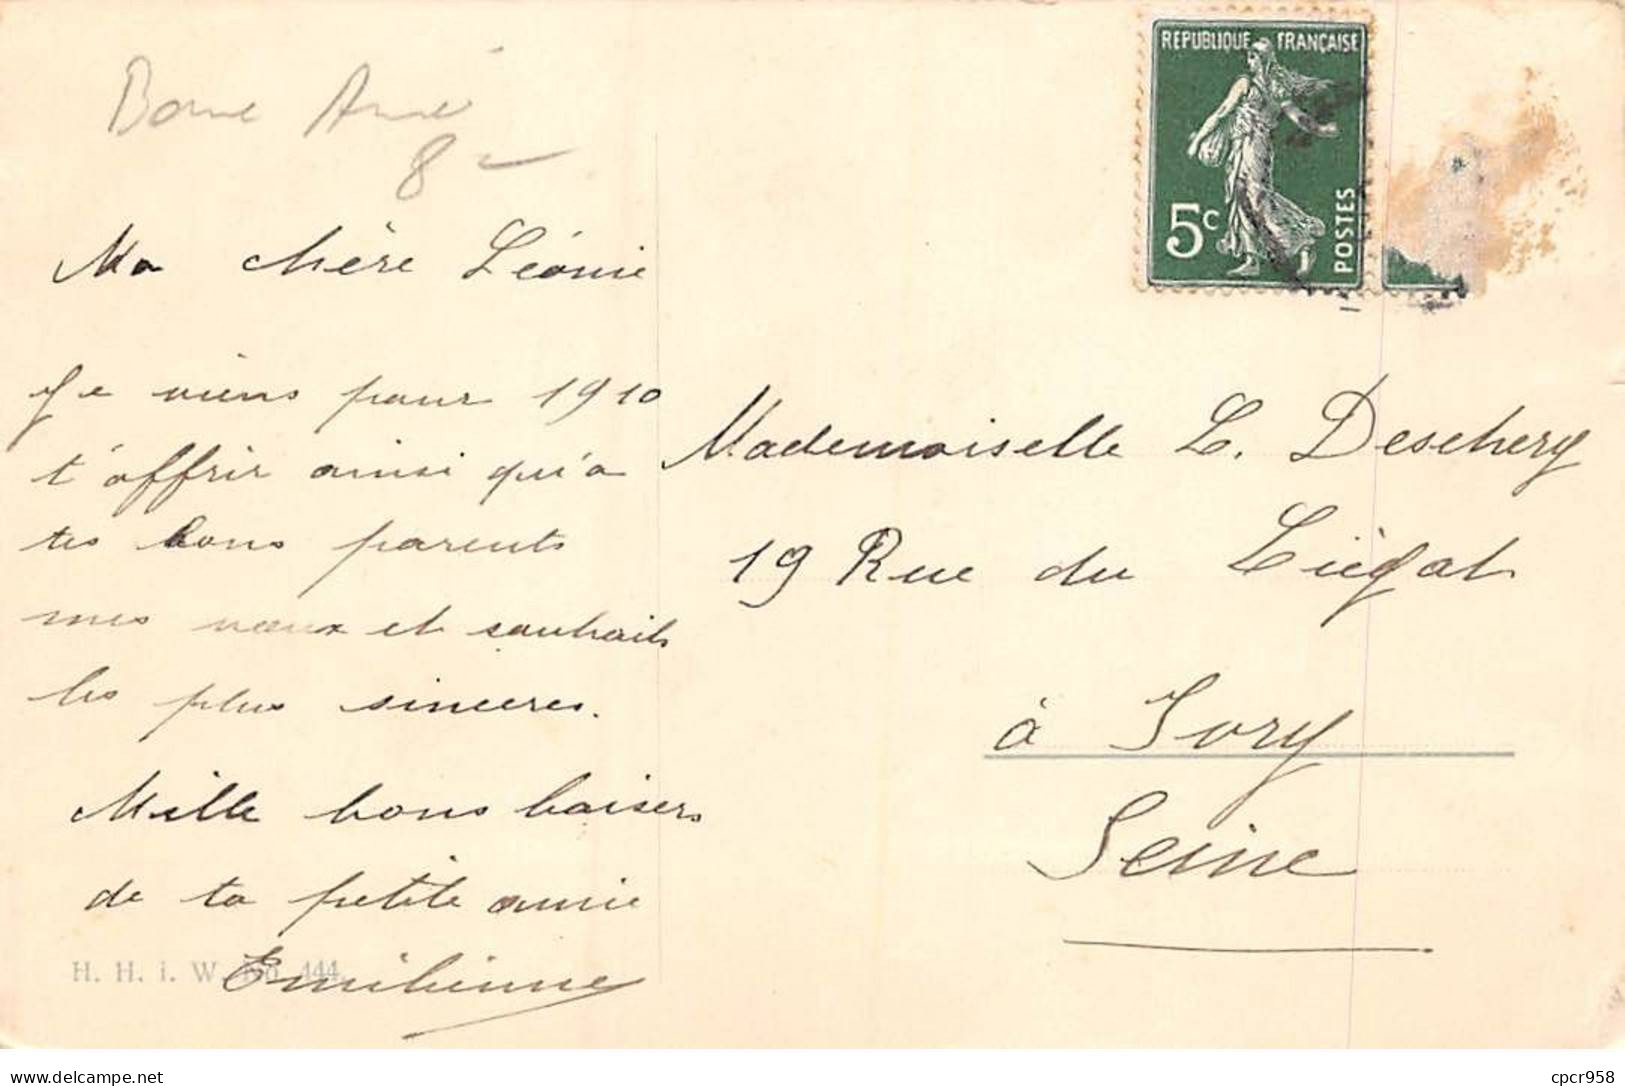 Bonne Anné
8-
RÉPUBLIQUE FRANÇAISE
5c
POSTES
Ma chère Léonie
Je viens pour 1910
t'offrir ainsi qu'a
tes bons parents
mes vœux et souhaits
les plus sinceres.
Mille bons baisers
de ta petite amie
Emilienne
H. H. i. W. No. 444.
Mademoiselle L. Deschery
19 Rue du Liégat
à Ivry
Seine
delcampe.net
cpcr958